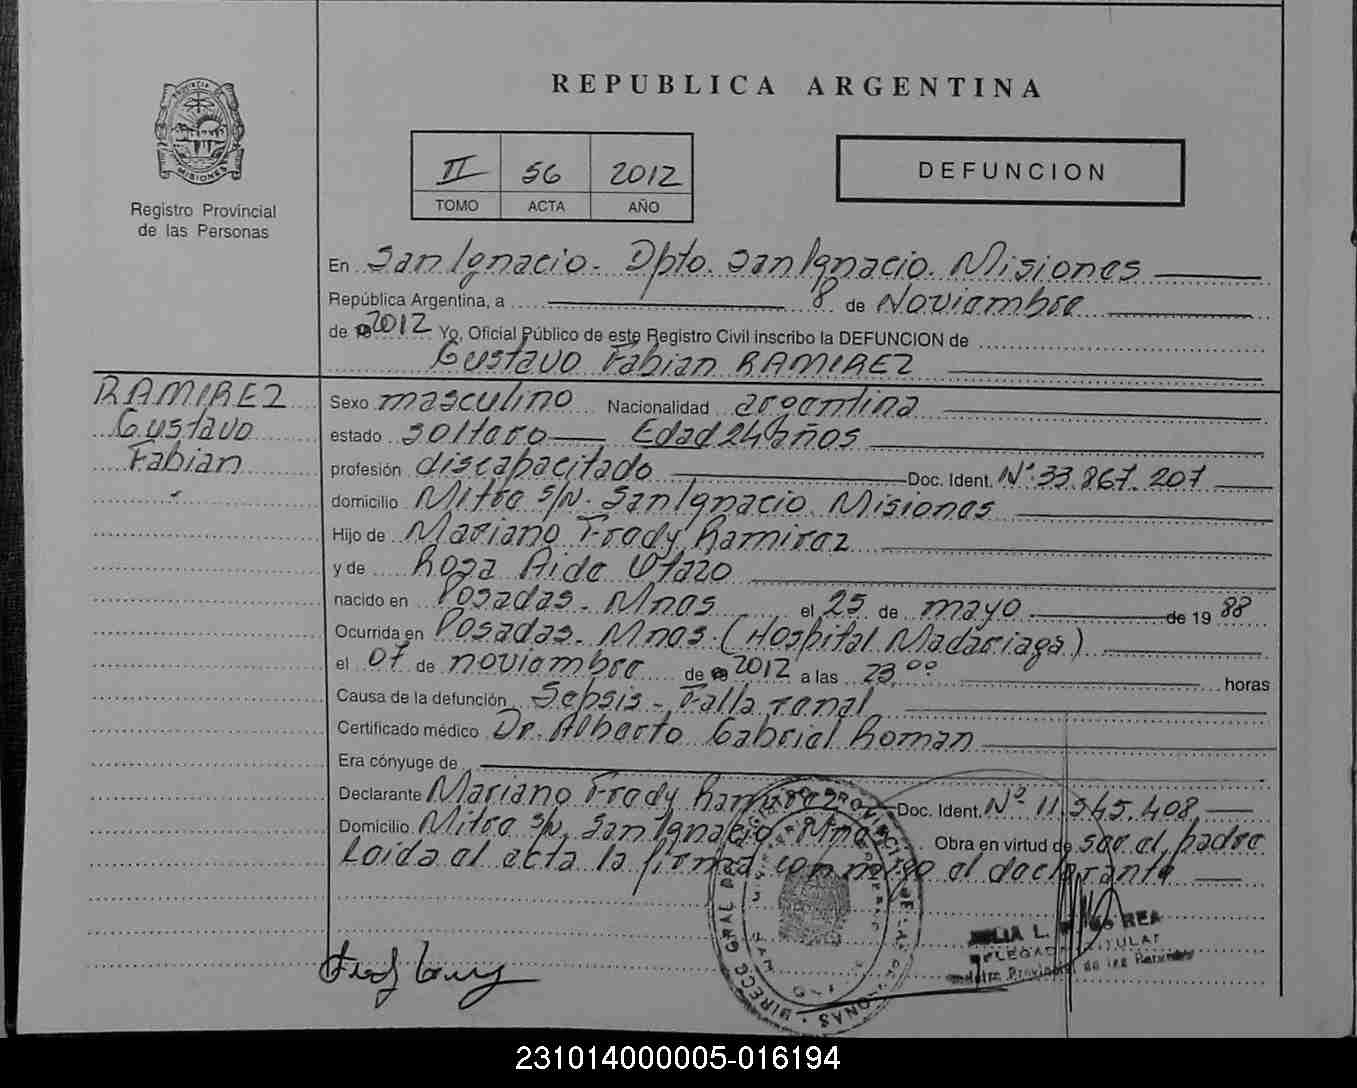 REPUBLICA ARGENTINA
PROVINCIA DE
MISIONES
Registro Provincial
de las Personas
II 56 2012
TOMO ACTA AÑO
DEFUNCION
En San Ignacio - Dpto. San Ignacio. Misiones
República Argentina, a 8 de Noviembre
de 2012 Yo, Oficial Público de este Registro Civil inscribo la DEFUNCION de
Gustavo Fabian RAMIREZ
RAMIREZ
Gustavo
Fabian
Sexo masculino Nacionalidad argentina
estado soltero Edad 24 años
profesión discapacitado Doc. Ident. Nº 33.867.207
domicilio Mitre s/N. San Ignacio. Misiones
Hijo de Mariano Fredy Ramirez
y de Rosa Aide Otazo
nacido en Posadas - Mnes el 25 de mayo de 1988
Ocurrida en Posadas - Mnes. (Hospital Madariaga)
el 07 de noviembre de 2012 a las 23,00 horas
Causa de la defunción Sepsis - Falla renal
Certificado médico Dr. Alberto Gabriel Roman
Era cónyuge de
Declarante Mariano Fredy Ramirez Doc. Ident. Nº 11.545.408
Domicilio Mitre s/N. San Ignacio - Mnes Obra en virtud de ser el padre
Leida el acta la firma conmigo el declarante
DELEGADO TITULAR
Registro Provincial de las Personas
231014000005-016194